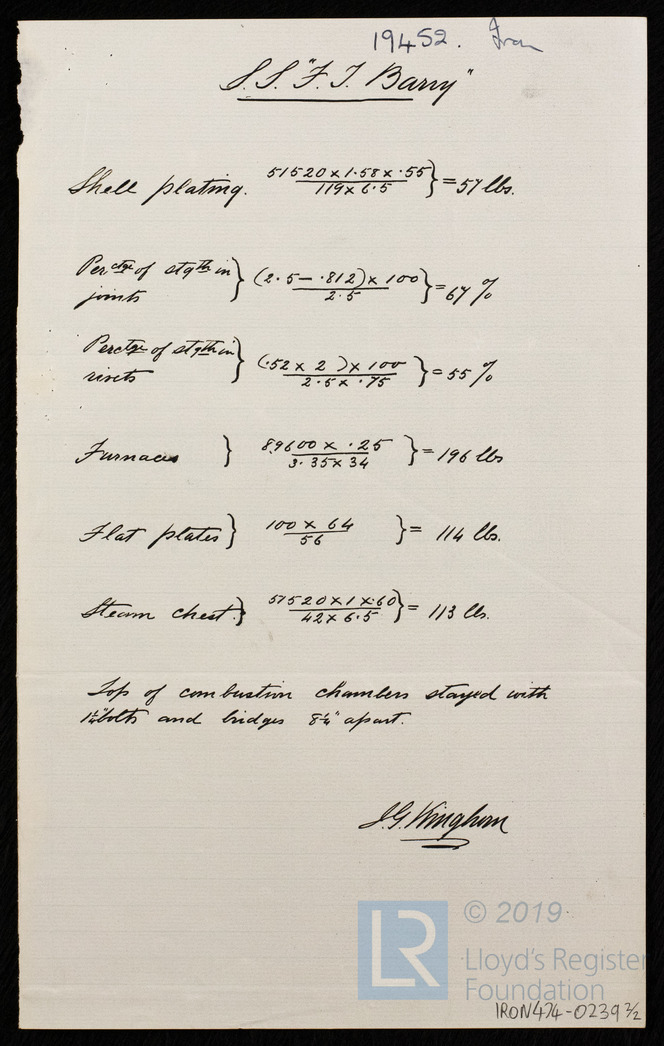 19452. Iron
S.S. "F. T. Barry"
Shell plating. 51520 x 1.58 x .55 / 119 x 6.5 } = 57 lbs.
Perctge of stgth in joints } (2.5 - .812) x 100 / 2.5 } = 67 %
Perctge of stgth in rivets } (.52 x 2) x 100 / 2.5 x .75 } = 55 %
Furnaces } 89600 x .25 / 3.35 x 34 } = 196 lbs
Flat plates } 100 x 64 / 56 } = 114 lbs.
Steam chest. } 51520 x 1 x .60 / 42 x 6.5 } = 113 lbs.
Tops of combustion chambers stayed with
bolts and bridges 8¼" apart.
J.G. Kinghorn
LR
© 2019
Lloyd's Register
Foundation
IRON474-0239 2/2